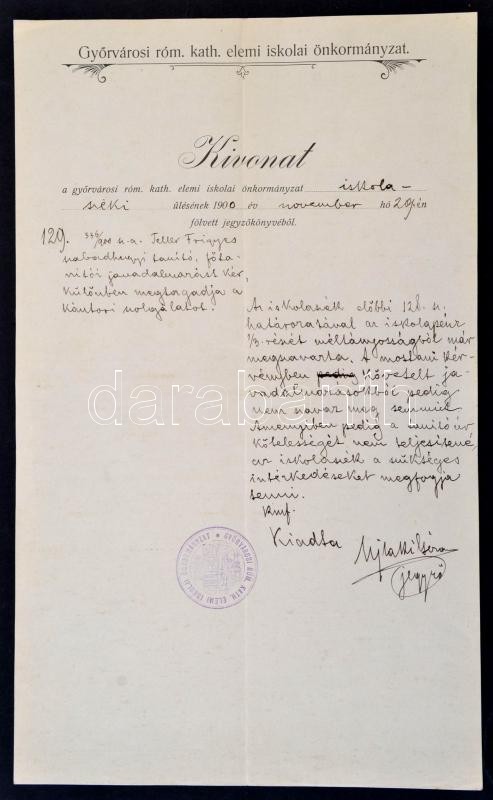 Győrvárosi róm. kath. elemi iskolai önkormányzat.
Kivonat
a győrvárosi róm. kath. elemi iskolai önkormányzat iskola-
széki ülésének 1900 év november hó 29-én
fölvett jegyzőkönyvéből.
129. 346/900 sz. a. Teller Frigyes
szabadhegyi tanító, főta-
nítói javadalmazást kér.
Különben megtagadja a
kántori szolgálatot.
Az iskolaszék előbbi 128. sz.
határozatával az iskolapénz
1/3-részét méltányosságból már
megszavazta. A mostani kér-
vényben pedig követelt ja-
vadalmazásokból pedig
nem szavaz meg semmit.
Amenyiben pedig a tanító úr
kötelességét nem teljesítené,
az iskolaszék a szükséges
intézkedéseket megfogja
tenni.
Kmf.
Kiadta
Ujlaki Géza
jegyző
GYŐRVÁROSI RÓM. KATH. ELEMI ISKOLAI ÖNKORMÁNYZAT
darabanth